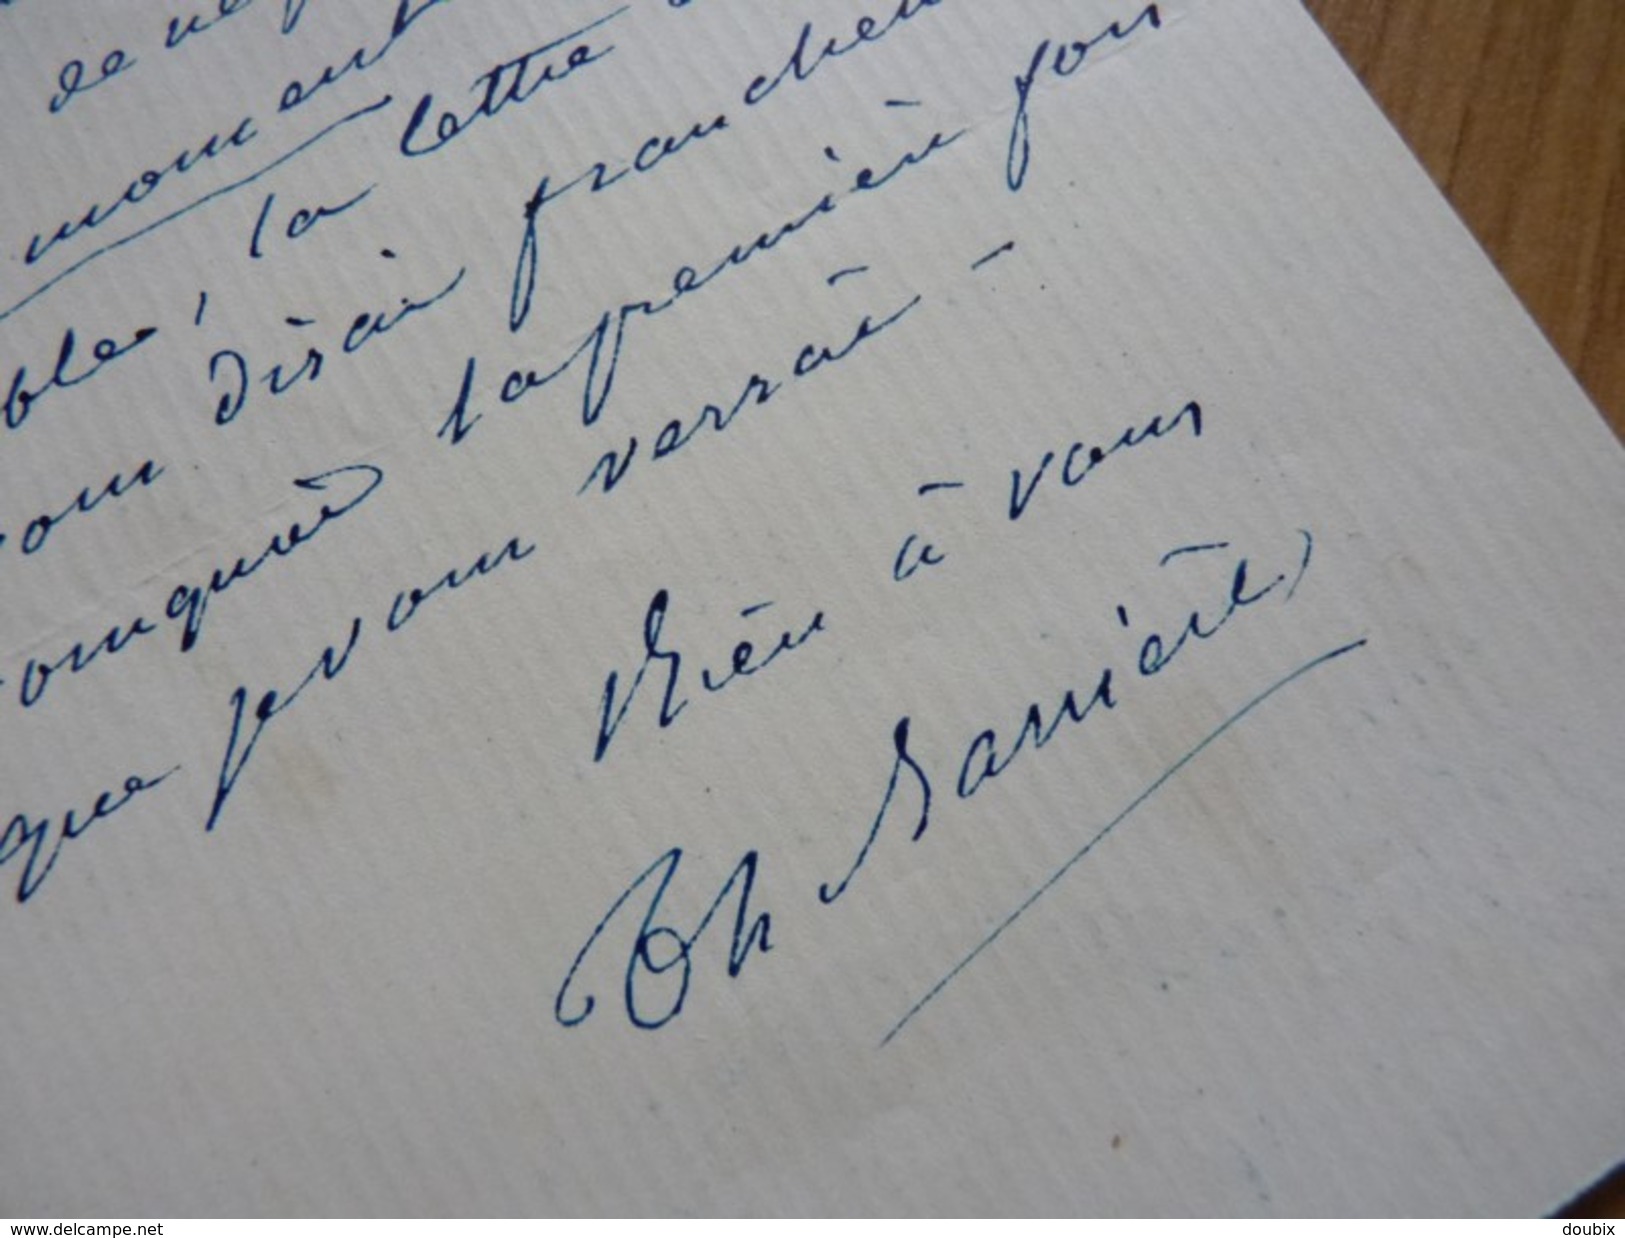 de ne
moment
la lettre
vous dirai franchem
pourquoi la première fois
que je vous verrai –
Bien à vous
Th Barrière
www.delcampe.net
doubix